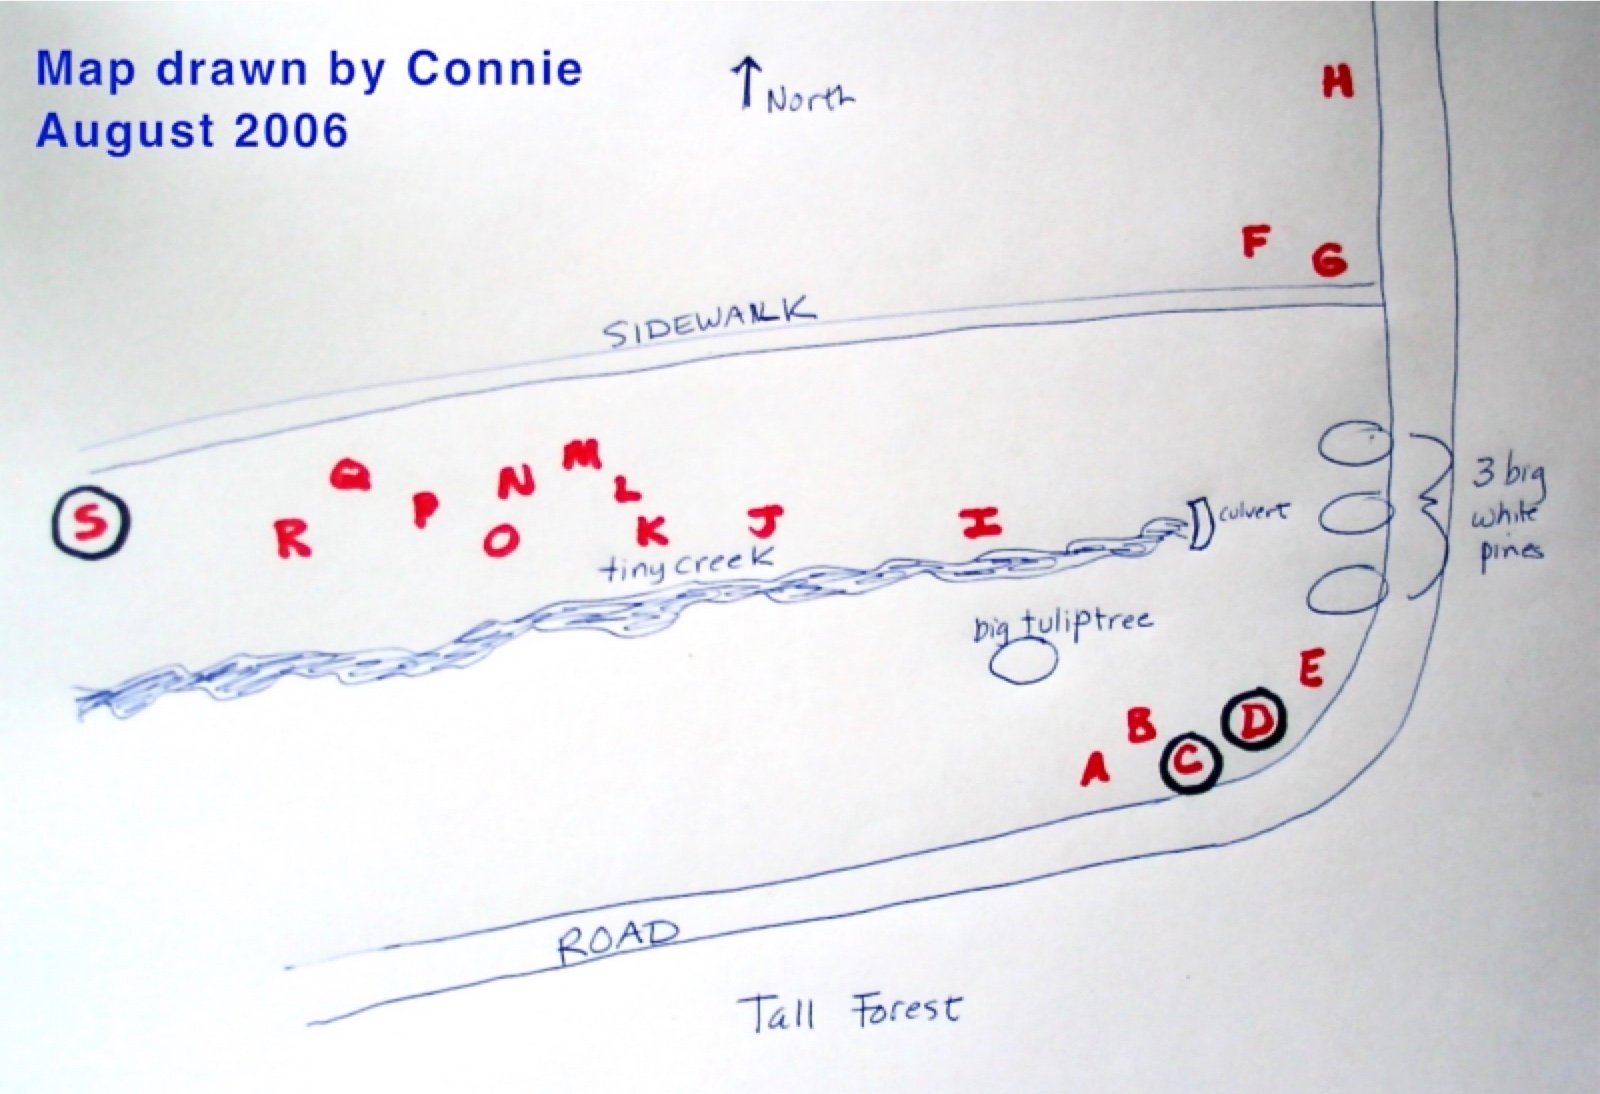 Map drawn by Connie
August 2006
North
H
F
G
SIDEWALK
Q
M
N
L
S
R
P
O
K
J
I
culvert
3 big
white
pines
tiny creek
big tuliptree
E
B
D
A
C
ROAD
Tall Forest